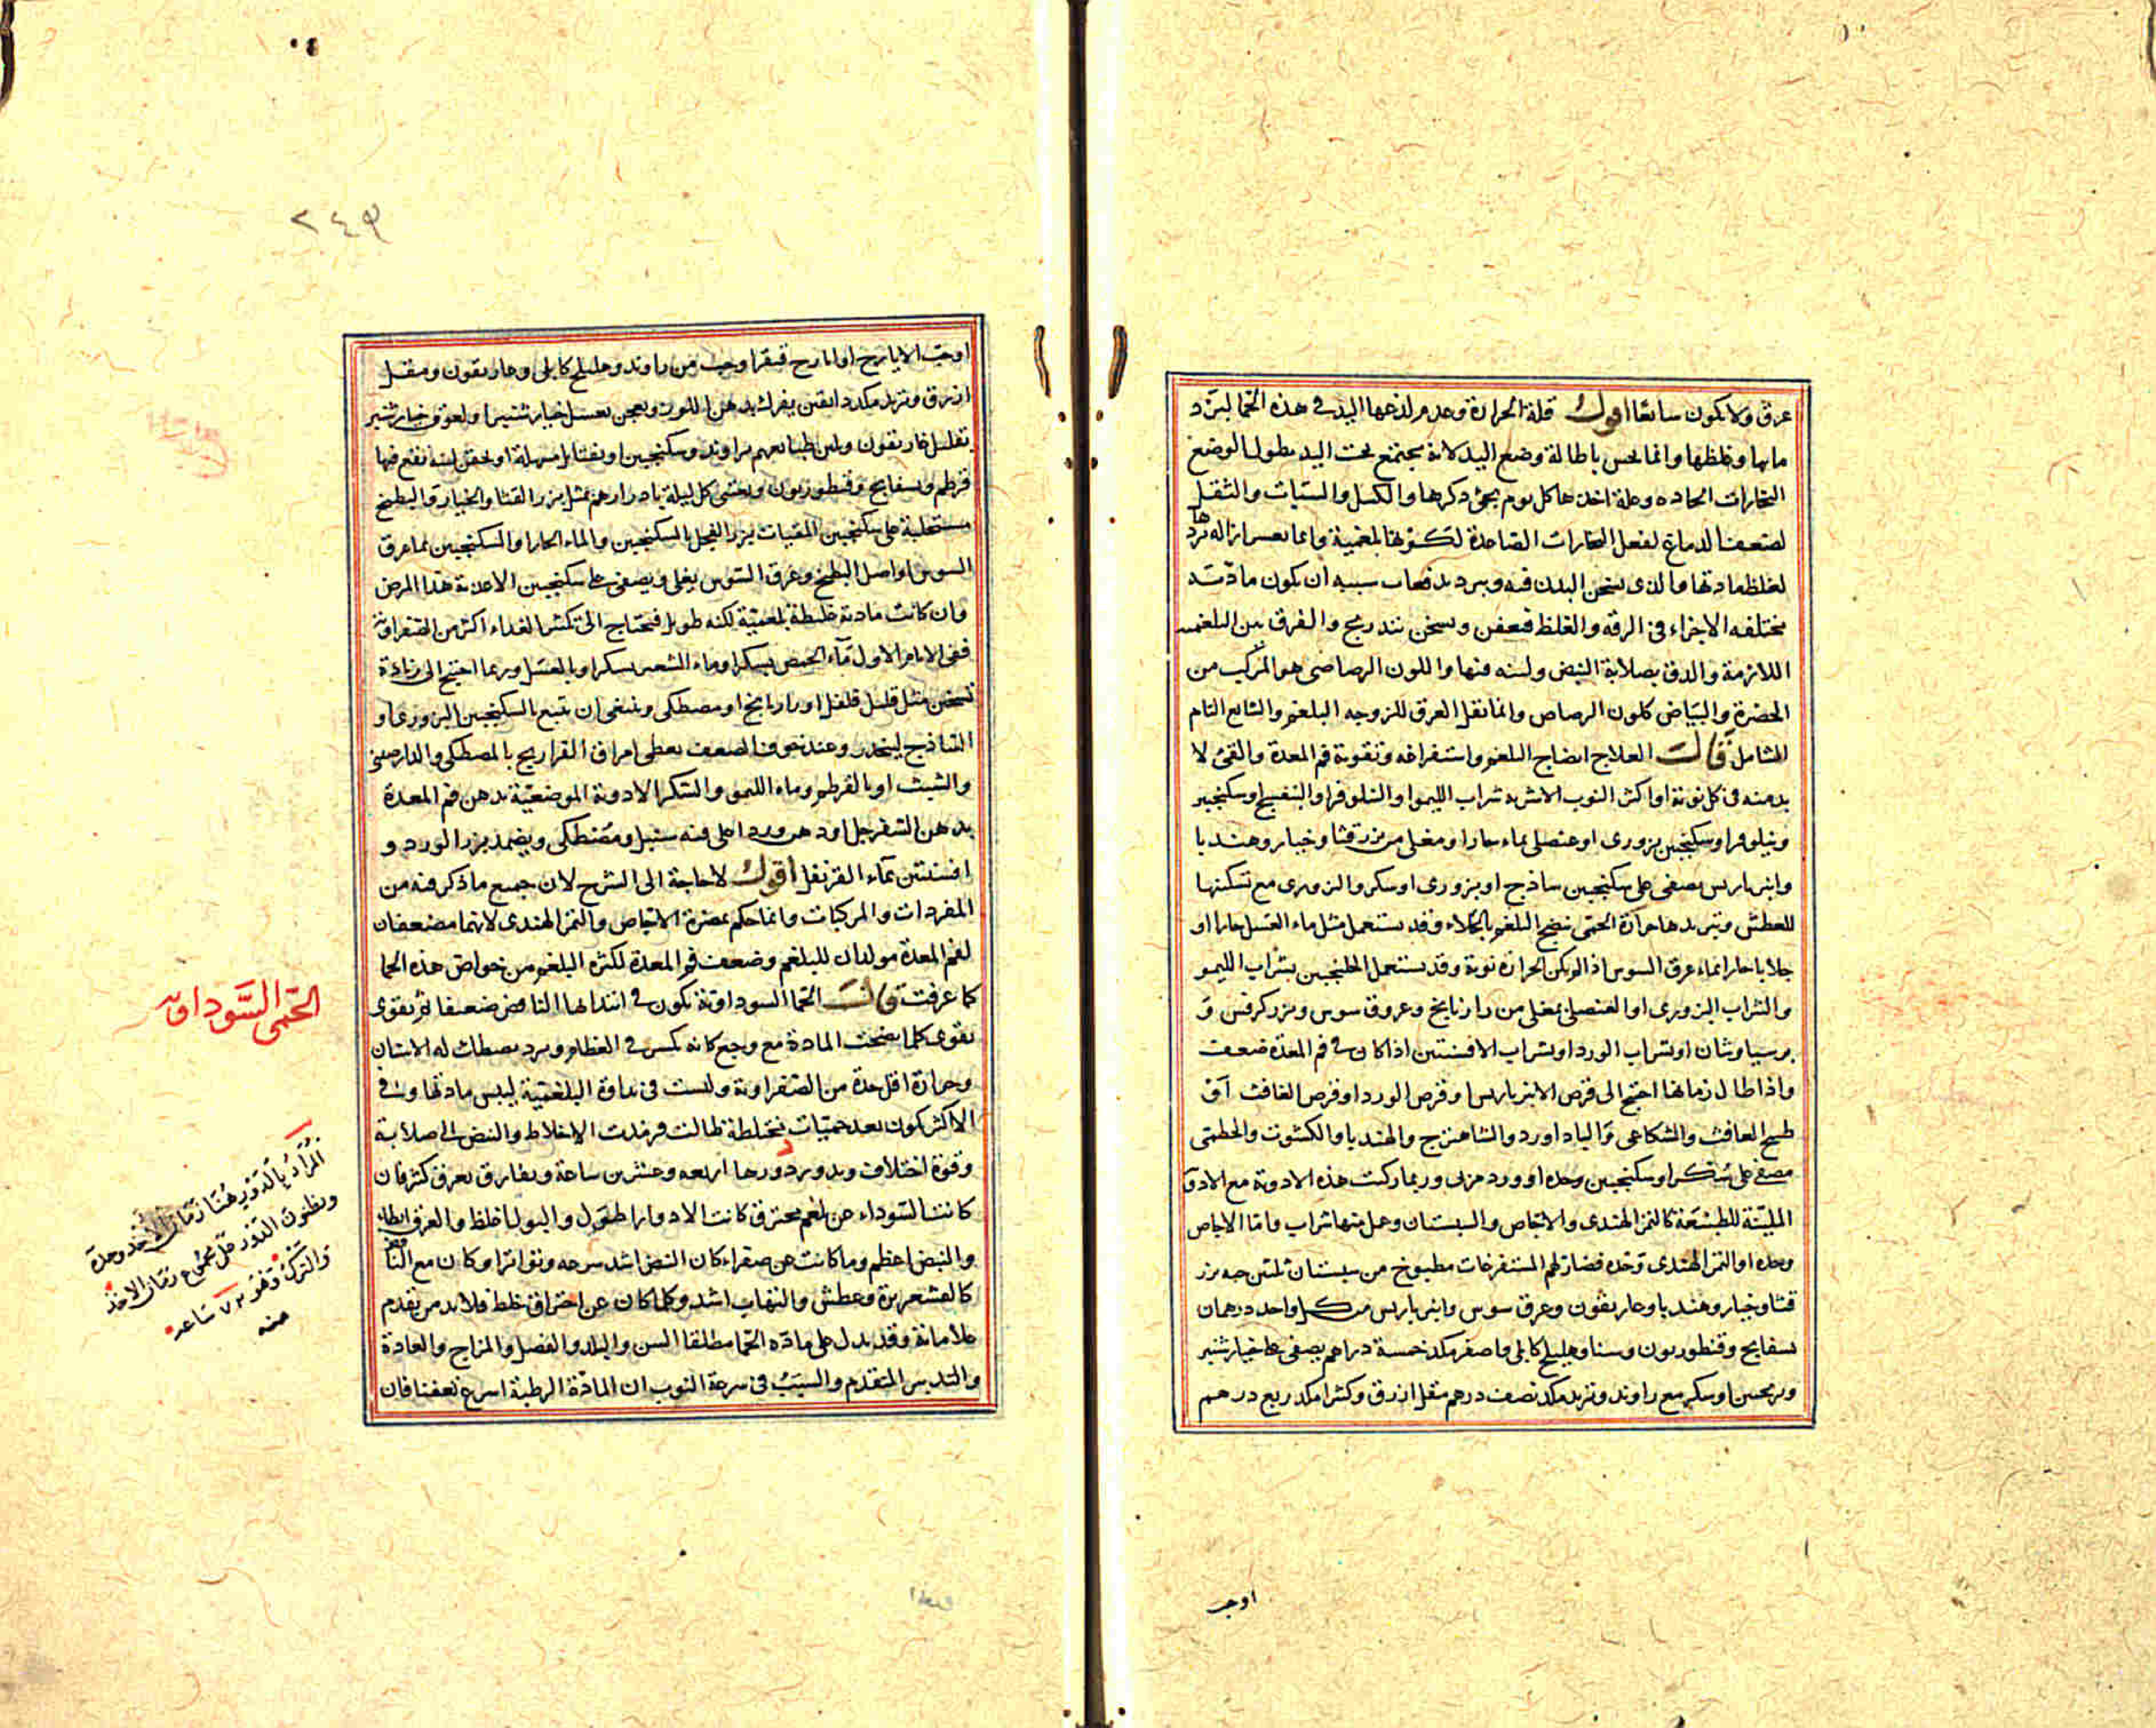 عرق ولا يكون سابغا اقول قلة الحرارة وعدم لذعها اليد في هذه الحمى لبرد
مادتها وغلظها وانما تحس باطالة وضع اليد لانه يجتمع تحت اليد بطول الوضع
البخارات الحادة وعلة اخذها كل يوم يجئ ذكرها والكسل والسبات والثقل
لضعف الدماغ لفعل البخارات الصاعدة لكونها بلغمية وانما تعسر ازالة بردها
لغلظ مادتها والذي يسخن البدن فيه ويبرد بدفعات سببه ان يكون مادته
مختلفة الاجزاء في الرقة والغلظ فتعفن وتسخن بتدريج والفرق بين البلغمية
اللازمة والدق بصلابة النبض ولينه فيها واللون الرصاصي هو المركب من
الخضرة والبياض كلون الرصاص وانما نقل العرق للزوجة البلغم والسابغ التام
الشامل قال العلاج انضاج البلغم واستفراغه وتقوية فم المعدة والقئ لا
بد منه في كل نوبة او اكثر النوب الاشربة شراب الليمو او النيلوفر او البنفسج او سكنجبين
ونيلوفر او سكنجبين بزوري او عنصلي بماء حار او مغلي من بزر قثا وخيار وهندبا
وانبرباريس يصفى على سكنجبين ساذج او بزوري او سكر والبزوري مع تسكينها
للعطش وتبريدها حرارة الحمى ينضج البلغم بالجلاء وقد يستعمل مثل ماء العسل حارا او
جلابا حارا بماء عرق السوس اذا لم يكن الحرارة قوية وقد يستعمل الجلنجبين بشراب الليمو
والشراب البزوري او العنصلي بمغلي من رازيانج وعروق سوس وبزر كرفس و
برسياوشان او بشراب الورد او بشراب الافسنتين اذا كان في فم المعدة ضعف
واذا طال زمانها احتيج الى قرص الانبرباريس او قرص الورد او قرص الغافث او
طبيخ الغافث والشكاعى والباداورد والشاهترج والهندبا والكشوث والخطمي
مصفى على سكر او سكنجبين وحده او ورد مربى وربما ركبت هذه الادوية مع الادوية
الملينة للطبيعة كالتمر الهندي والاجاص والسبستان وعمل منها شراب واما الاجاص
وحده او التمر الهندي وحده فضار لهم المستفرغات مطبوخ من سبستان ثلثين حبة بزر
قثا وخيار وهندبا وغاريقون وعرق سوس وانبرباريس من كل واحد درهمان
بسفايج وقنطوريون وسنا وهليلج كابلي واصفر مكد خمسة دراهم يصفى على خيار شنبر
وترنجبين او سكر مع راوند وتربد مكد نصف درهم مقل ازرق وكثيرا مكد ربع درهم
اوحب
٢٤٩
اوحب الايارج او ايارج فيقرا وحب من راوند وهليلج كابلي وغاريقون ومقل
ازرق وتربد مكد دانقين يفرك بدهن اللوز ويعجن بعسل خيار شنبر او لعوق خيار شنبر
بقليل غاريقون وتلين طبائعهم براوند وسكنجبين او بفتايل مسهلة او بحقن لينة يقع فيها
قرطم وبسفايج وقنطوريون ويعشى كل ليلة بادرارهم بمثل بزر القثا والخيار والبطيخ
مستحلبة على سكنجبين المقيات بزر الفجل بالسكنجبين والماء الحار او السكنجبين بماء عرق
السوس او اصل البطيخ وعرق السوس يغلى ويصفى على سكنجبين الاغذية هذا المرض
وان كانت مادته غليظة بلغمية لكنه طويل فيحتاج الى تكثير الغذاء اكثر من الصفراوية
ففي الايام الاول ماء الحمص بسكر او ماء الشعير بسكر او بالعسل وربما احتيج الى زيادة
تسخين مثل قليل فلفل او رازيانج او مصطكى وينبغي ان يتبع بالسكنجبين البزوري او
الساذج ليتحدر وعند خوف الضعف يعطى امراق الفراريج بالمصطكى والدارصيني
والشبت او بالقرطم وماء الليمو والسكر الادوية الموضعية يدهن فم المعدة
بدهن السفرجل او دهن ورد اغلي فيه سنبل ومصطكى ويضمد ببزر الورد و
افسنتين بماء القرنفل اقول لا حاجة الى الشرح لان جميع ما ذكر فيه من
المفردات والمركبات وانما حكم بمضرة الاجاص والتمر الهندي لانهما مضعفان
لفم المعدة مولدان للبلغم وضعف فم المعدة لكثرة البلغم من خواص هذه الحمى
كما عرفت قال الحمى السوداوية تكون في ابتدائها النافض ضعيفا ثم يقوى
يقوى كلما نضجت المادة مع وجع كانه تكسر في العظام وبرد يصطك له الاسنان
وحرارة اقل حدة من الصفراوية وليست في نداوة البلغمية ليبس مادتها وفي
الاكثر تكون بعد حميات مختلطة طالت فرمدت الاخلاط والنبض الى صلابة
وقوة اختلاف وبدو برد دورها اربعة وعشرين ساعة ويفارق بعرق كثير فان
كانت السوداء عن بلغم محترق كانت الادوار اطول والبول اغلظ والعرق ابطأ
والنبض اعظم وما كانت عن صفراء كان النبض اشد سرعة وتواترا وكان مع النافض
كالقشعريرة وعطش والتهاب اشد وكلما كان عن احتراق خلط فلا بد من تقدم
علاماته وقد يدل على مادة الحمى مطلقا السن والبلد والفصل والمزاج والعادة
والتدبير المتقدم والسبب في سرعة النوب ان المادة الرطبة اسرع تعفنا فان
الحمى السوداوية
المراد بالدور هنا زمان الاخذ وحده
ويطلقون الدور على مجموع زمان الاخذ
والترك وهو ٧٢ ساعة
منه